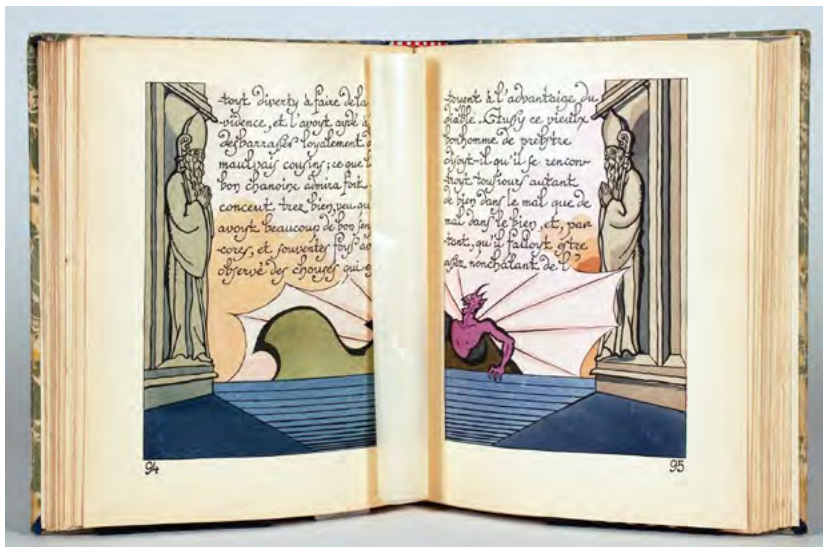 -toyt diverty à faire de la
-vidence, et l'avoyt aydé à
desbarrasser loyalement d
maulvais cousins; ce que l
bon chanoine admira fort
conceut trez bien, veu qu
avoyt beaucoup de bon sen
-cores, et souventes foys av
observé des chouses qui e
94
-toyent à l'advantaige du
diable. Aussy ce vieulx
bonhomme de prebstre
disoyt-il qu'il se rencon-
troyt tousiours autant
de bien dans le mal que de
mal dans le bien, et, par
-tant, qu'il falloyt estre
assez nonchalant de l'
95